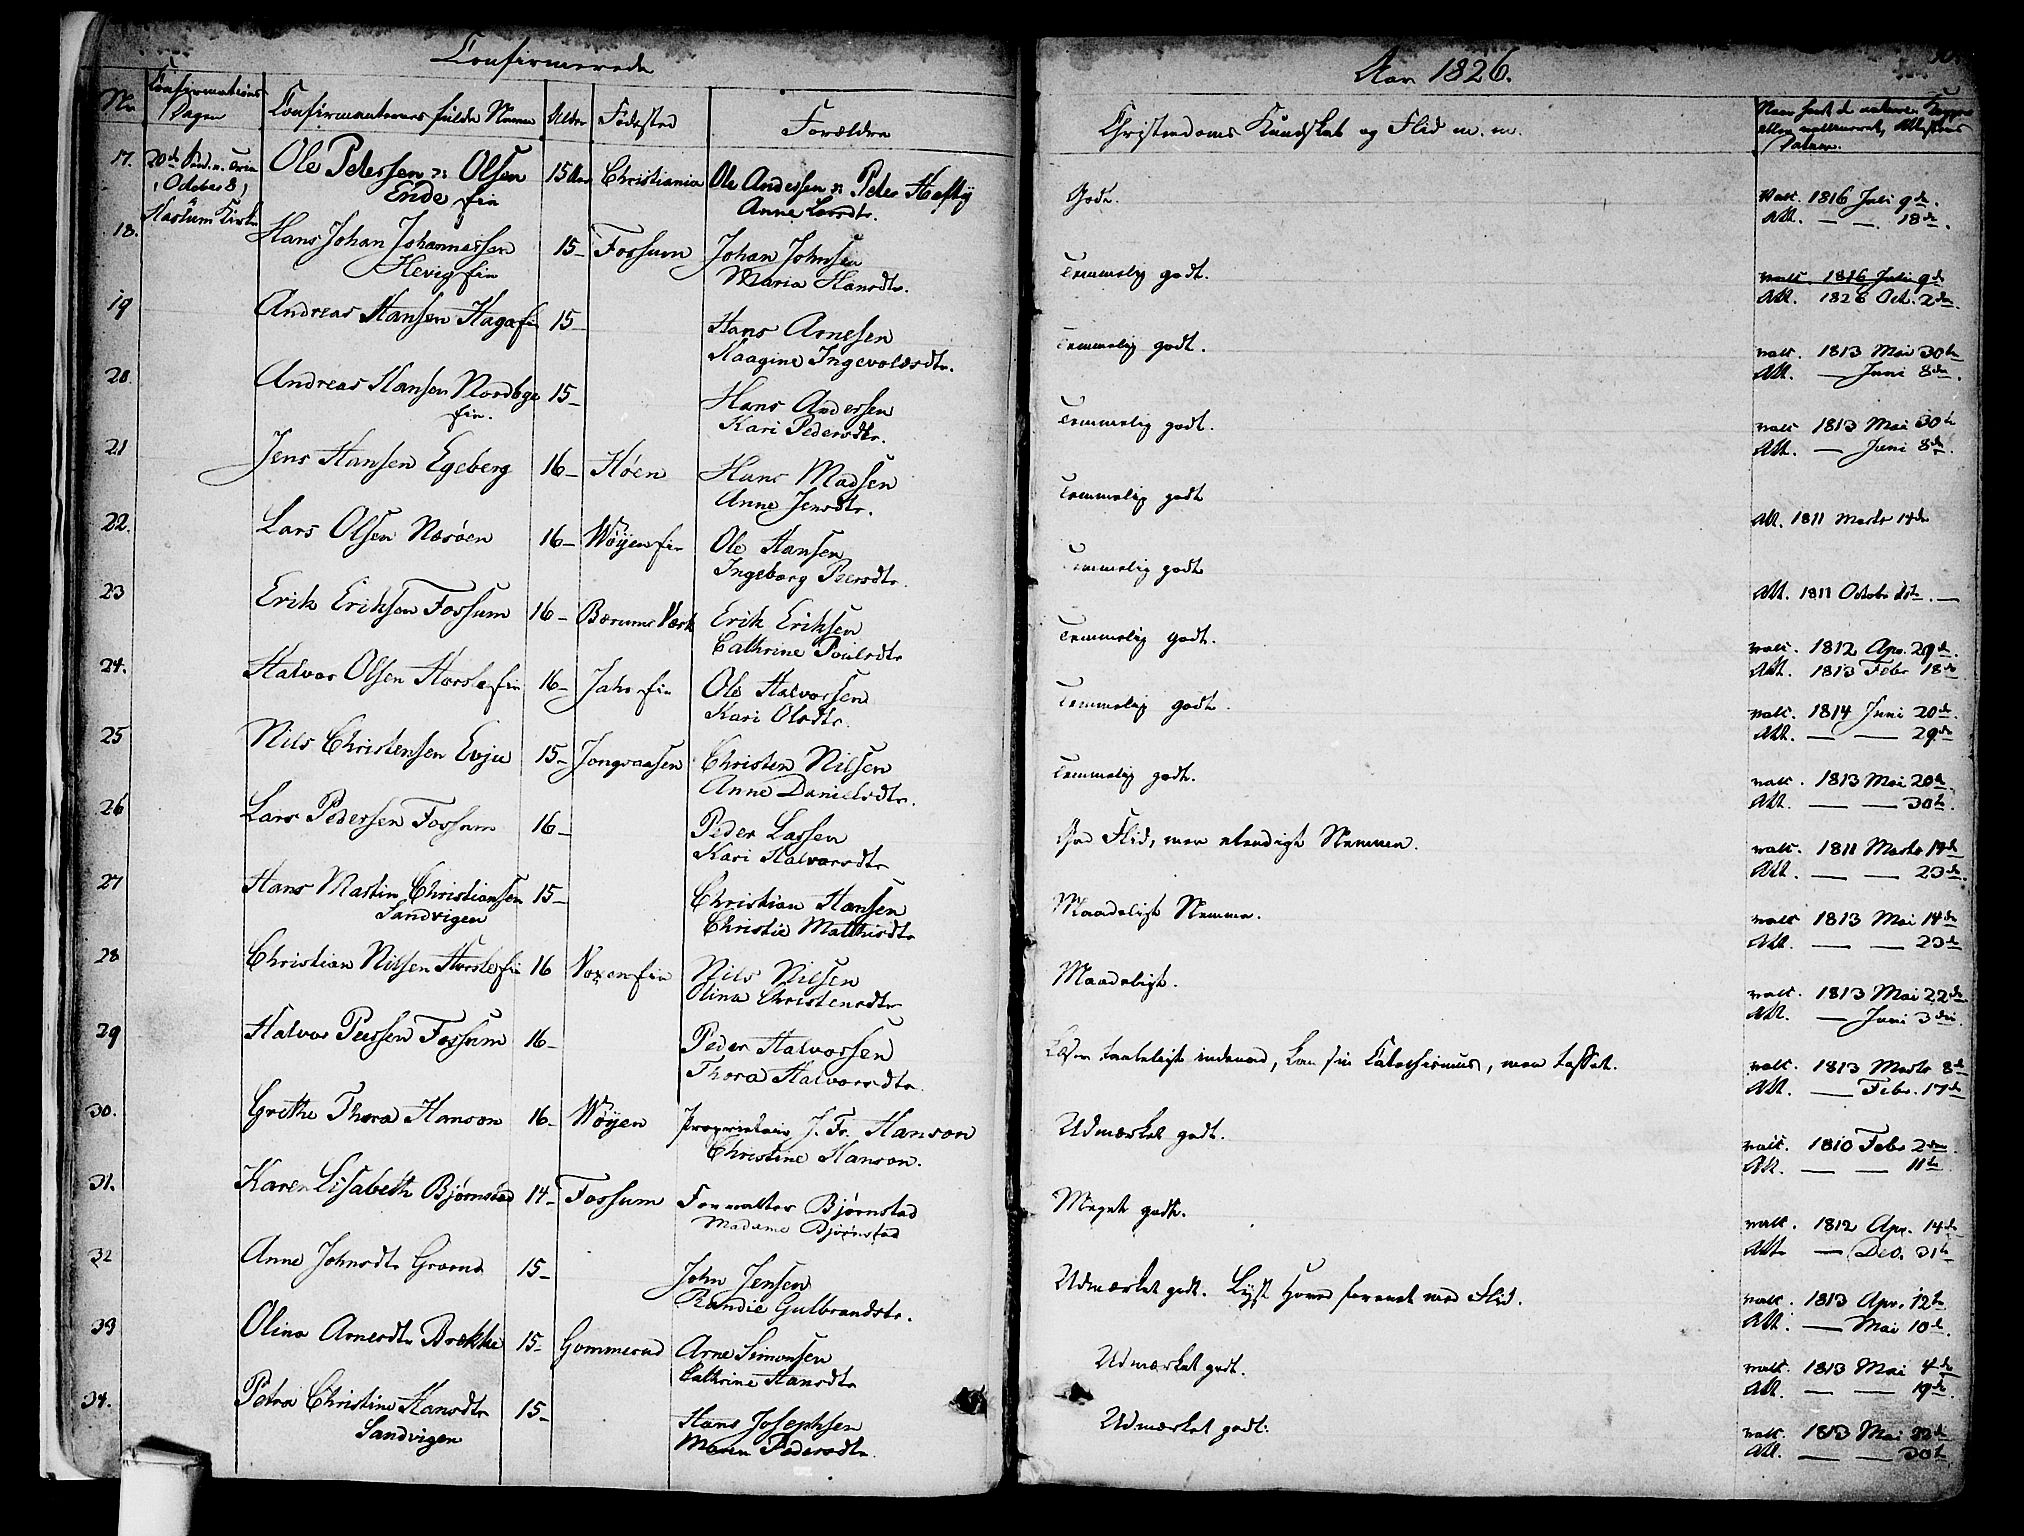 Confirmerede
Aar 1826.
No
Confirmations
Dagen
Confirmanternes fulde Navne
Alder
Fødested
Forældre
Christendoms Kundskab og Flid m. m.
Naar havt de naturl. Kopper
eller vaccineret, Attestens
Datum.
17.
20de Sønd. a. Trin
(October 8)
Haslum Kirke
Ole Petersen ɔ: Olsen
Ende fie
15 Aar
Christiania
Ole Andersen ɔ: Peter Hefty
Anne Larsdtr.
Godt.
Vacc. 1816 Juli 9de.
Att. — — 18de.
18.
Hans Johan Johannessen
Hevig fie
15 –
Fossum
Johan Johnsen
Maria Hansdtr.
Temmelig godt.
vacc. 1816 Juli 9de
Att. 1826 Oct. 2den
19
Andreas Hansen Haga fie
15 –
Hans Arnesen
Kaagine Ingevoldsdtr.
Temmelig godt.
vacc. 1813 Mai 30te
Att. — Juni 8de.
20.
Andreas Hansen Nordbye
fie.
15 –
Hans Andersen
Kari Pedersdtr.
Temmelig godt.
vacc. 1813 Mai 30te
Att. — Juni 8de.
21
Jens Hansen Egeberg
16 –
Høen
Hans Madsen
Anne Jensdtr.
Temmelig godt
Att. 1811 Marts 14de
22.
Lars Olsen Næsøen
16 –
Wøyen fie
Ole Hansen
Ingeborg Peersdtr.
Temmelig godt
Att. 1811 Octobr
23
Erik Eriksen Fossum
16 –
Bærums Værk
Erik Eriksen
Cathrine Poulsdtr
Temmelig godt.
vacc. 1812 Apr. 29de.
Att. 1813 Febr 18de
24.
Halvor Olsen Horsle fie
16 –
Jahr fie
Ole Halvorsen
Kari Olsdtr.
Temmelig godt.
vacc. 1814 Juni 20de.
Att. — — 29de
25
Nils Christensen Evju
15 –
Jongsaasen
Christen Nilsen
Anne Danielsdtr.
Temmelig godt.
vacc. 1813 Mai 20de.
Att. — — 30te.
26
Lars Pedersen Fossum
16 –
Peder Larsen
Kari Halvorsdtr
God Flid, men elendigt Nemme.
vacc. 1811 Marts 19de
Att. — — 23de.
27
Hans Martin Christiansen
Sandvigen
15 –
Christian Hansen
Christie Matthisdtr
Maadeligt Nemme.
vacc. 1813 Mai 14de
Att. — — 23de
28
Christian Nilsen Horsle fie
16
Voxen fie
Nils Nilsen
Olina Christensdtr
Maadeligt.
vacc. 1813 Mai 22de.
Att. — Juni 3die.
29
Halvor Peersen Fossum
16 –
Peder Halvorsen
Thora Halvorsdtr.
Læser taaleligt indenad, kan sin Catechismus, men tosset.
vacc. 1813 Marts 8de
Att. — Febr. 17de
30.
Grethe Thora Hanson
16 –
Wøyen
Proprietair J. Fr. Hanson
Christine Hanson.
Udmærket godt.
vacc. 1810 Febr 2den
Att. — — 11te
31.
Karen Lisabeth Bjørnstad
14 –
Fossum
Forvalter Bjørnstad
Madame Bjørnstad
Meget godt.
vacc. 1812 Apr. 14de
Att. — Dec. 31te
32
Anne Johnsdtr Grorud
15 –
John Jensen
Randie Gulbrandsdtr.
Udmærket godt. Lyst Hoved forenet med Flid.
vacc. 1813 Apr. 12te
Att. — Mai 10de.
33
Olina Arnesdtr Brække
15 –
Gommerud
Arne Simonsen
Cathrine Hansdtr
Udmærket godt.
vacc. 1813 Mai 4de
Att. — — 19de.
34.
Petra Christine Hansdtr
Sandvigen
15 –
Hans Josephsen
Maren Pedersdtr.
Udmærket godt.
vacc. 1813 Mai 22de
Att. — — 30te.